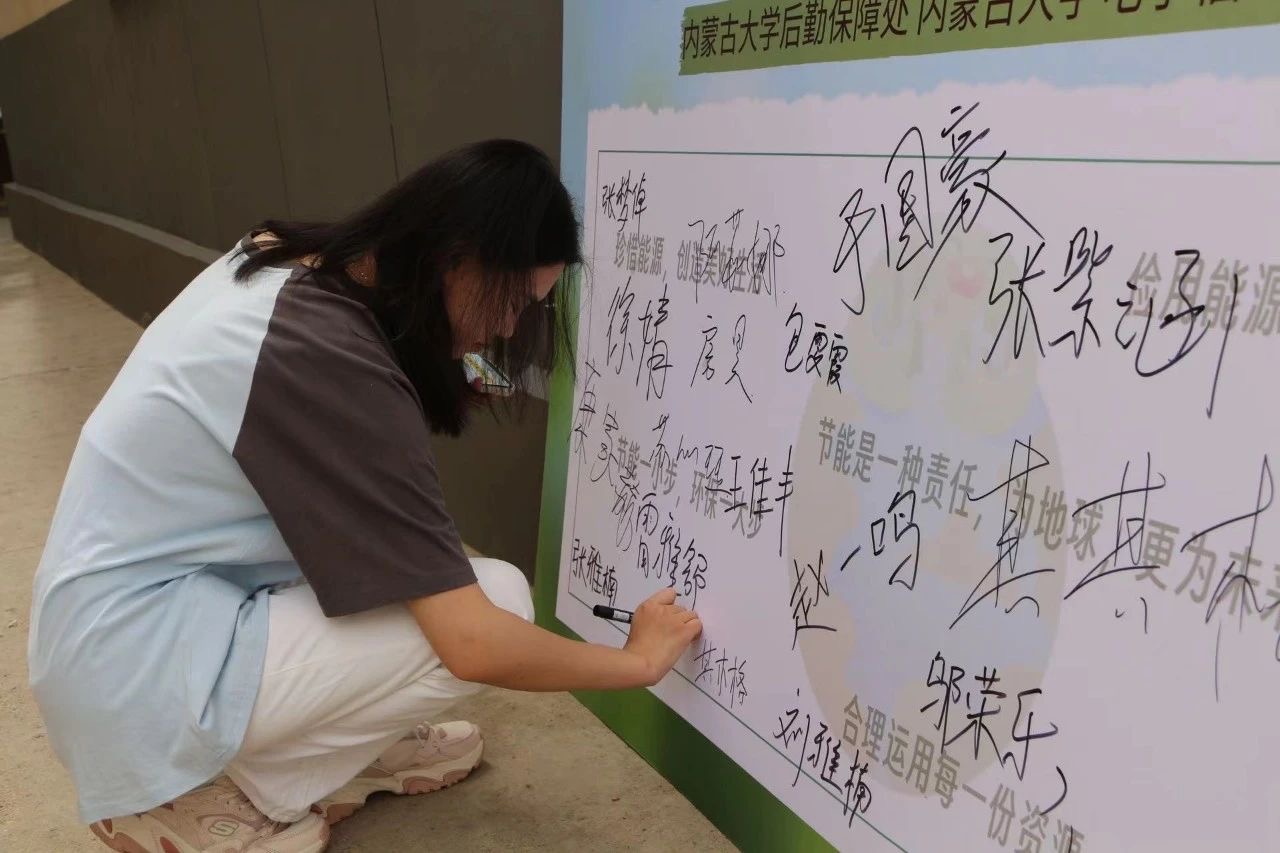 内蒙古大学后勤保障处 内蒙古大学
张梦倬
珍惜能源，创造美好生活
于国豪
张紫涵
俭用能源
徐婧
房昊
包雯霞
节能一小步，环保一大步
王佳丰
节能是一种责任，为地球 更为未来
赵一鸣
其其
雷雅舒
张雅楠
其木格
邬荣乐
刘雅楠
合理运用每一份资源